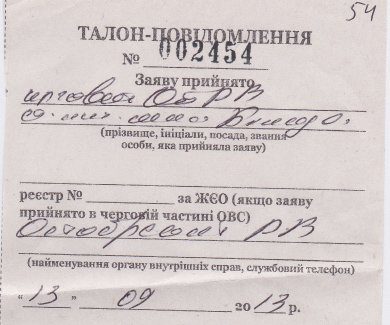 54
ТАЛОН-ПОВІДОМЛЕННЯ
№ 002454
Заяву прийнято
(прізвище, ініціали, посада, звання
особи, яка прийняла заяву)
реєстр № за ЖЄО (якщо заяву
прийнято в черговій частині ОВС)
РВ
(найменування органу внутрішніх справ, службовий телефон)
“ 13 ” 09 2013 р.